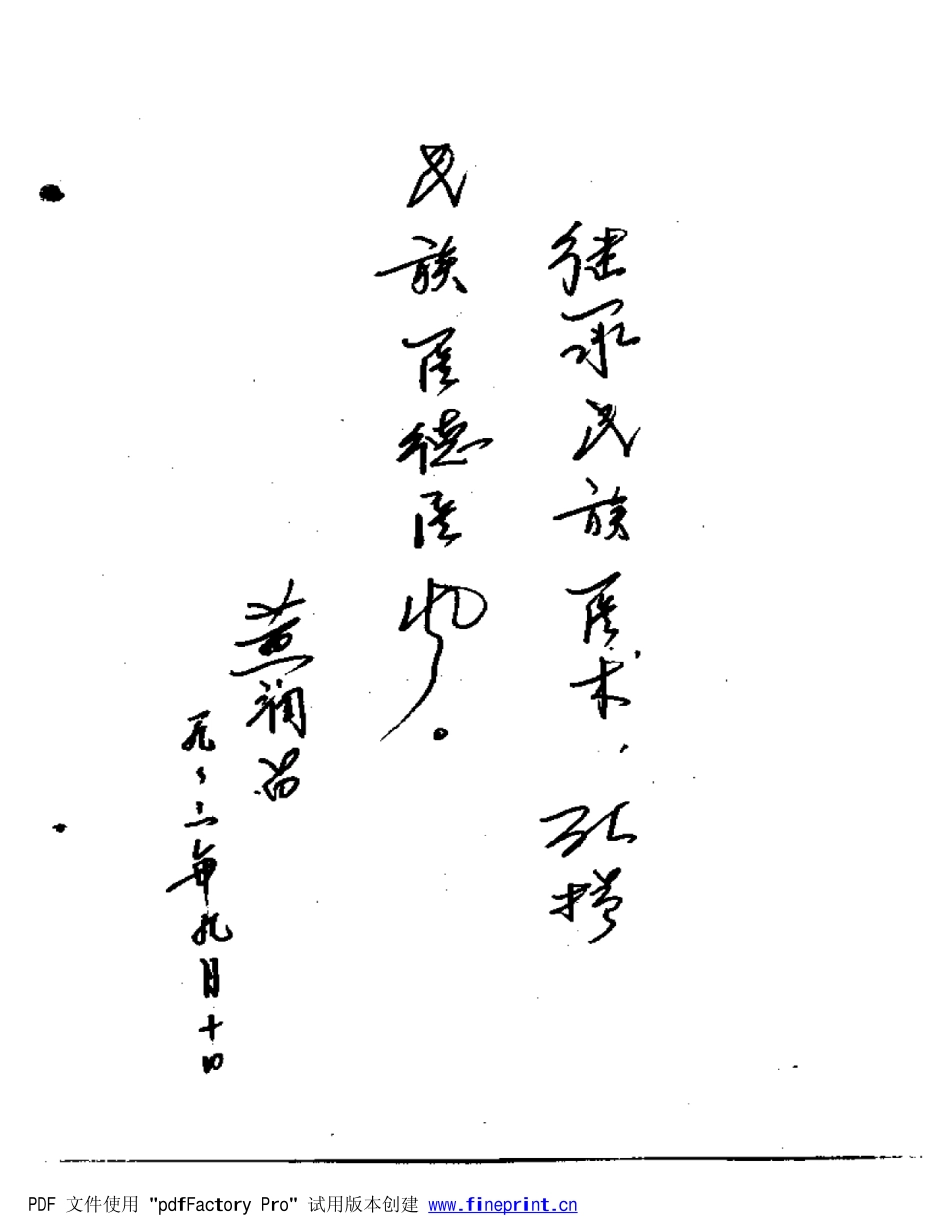 继承民族医术，弘扬
民族医德医风。
黄润苗
一九九三年九月十四
PDF 文件使用 "pdfFactory Pro" 试用版本创建 www.fineprint.cn